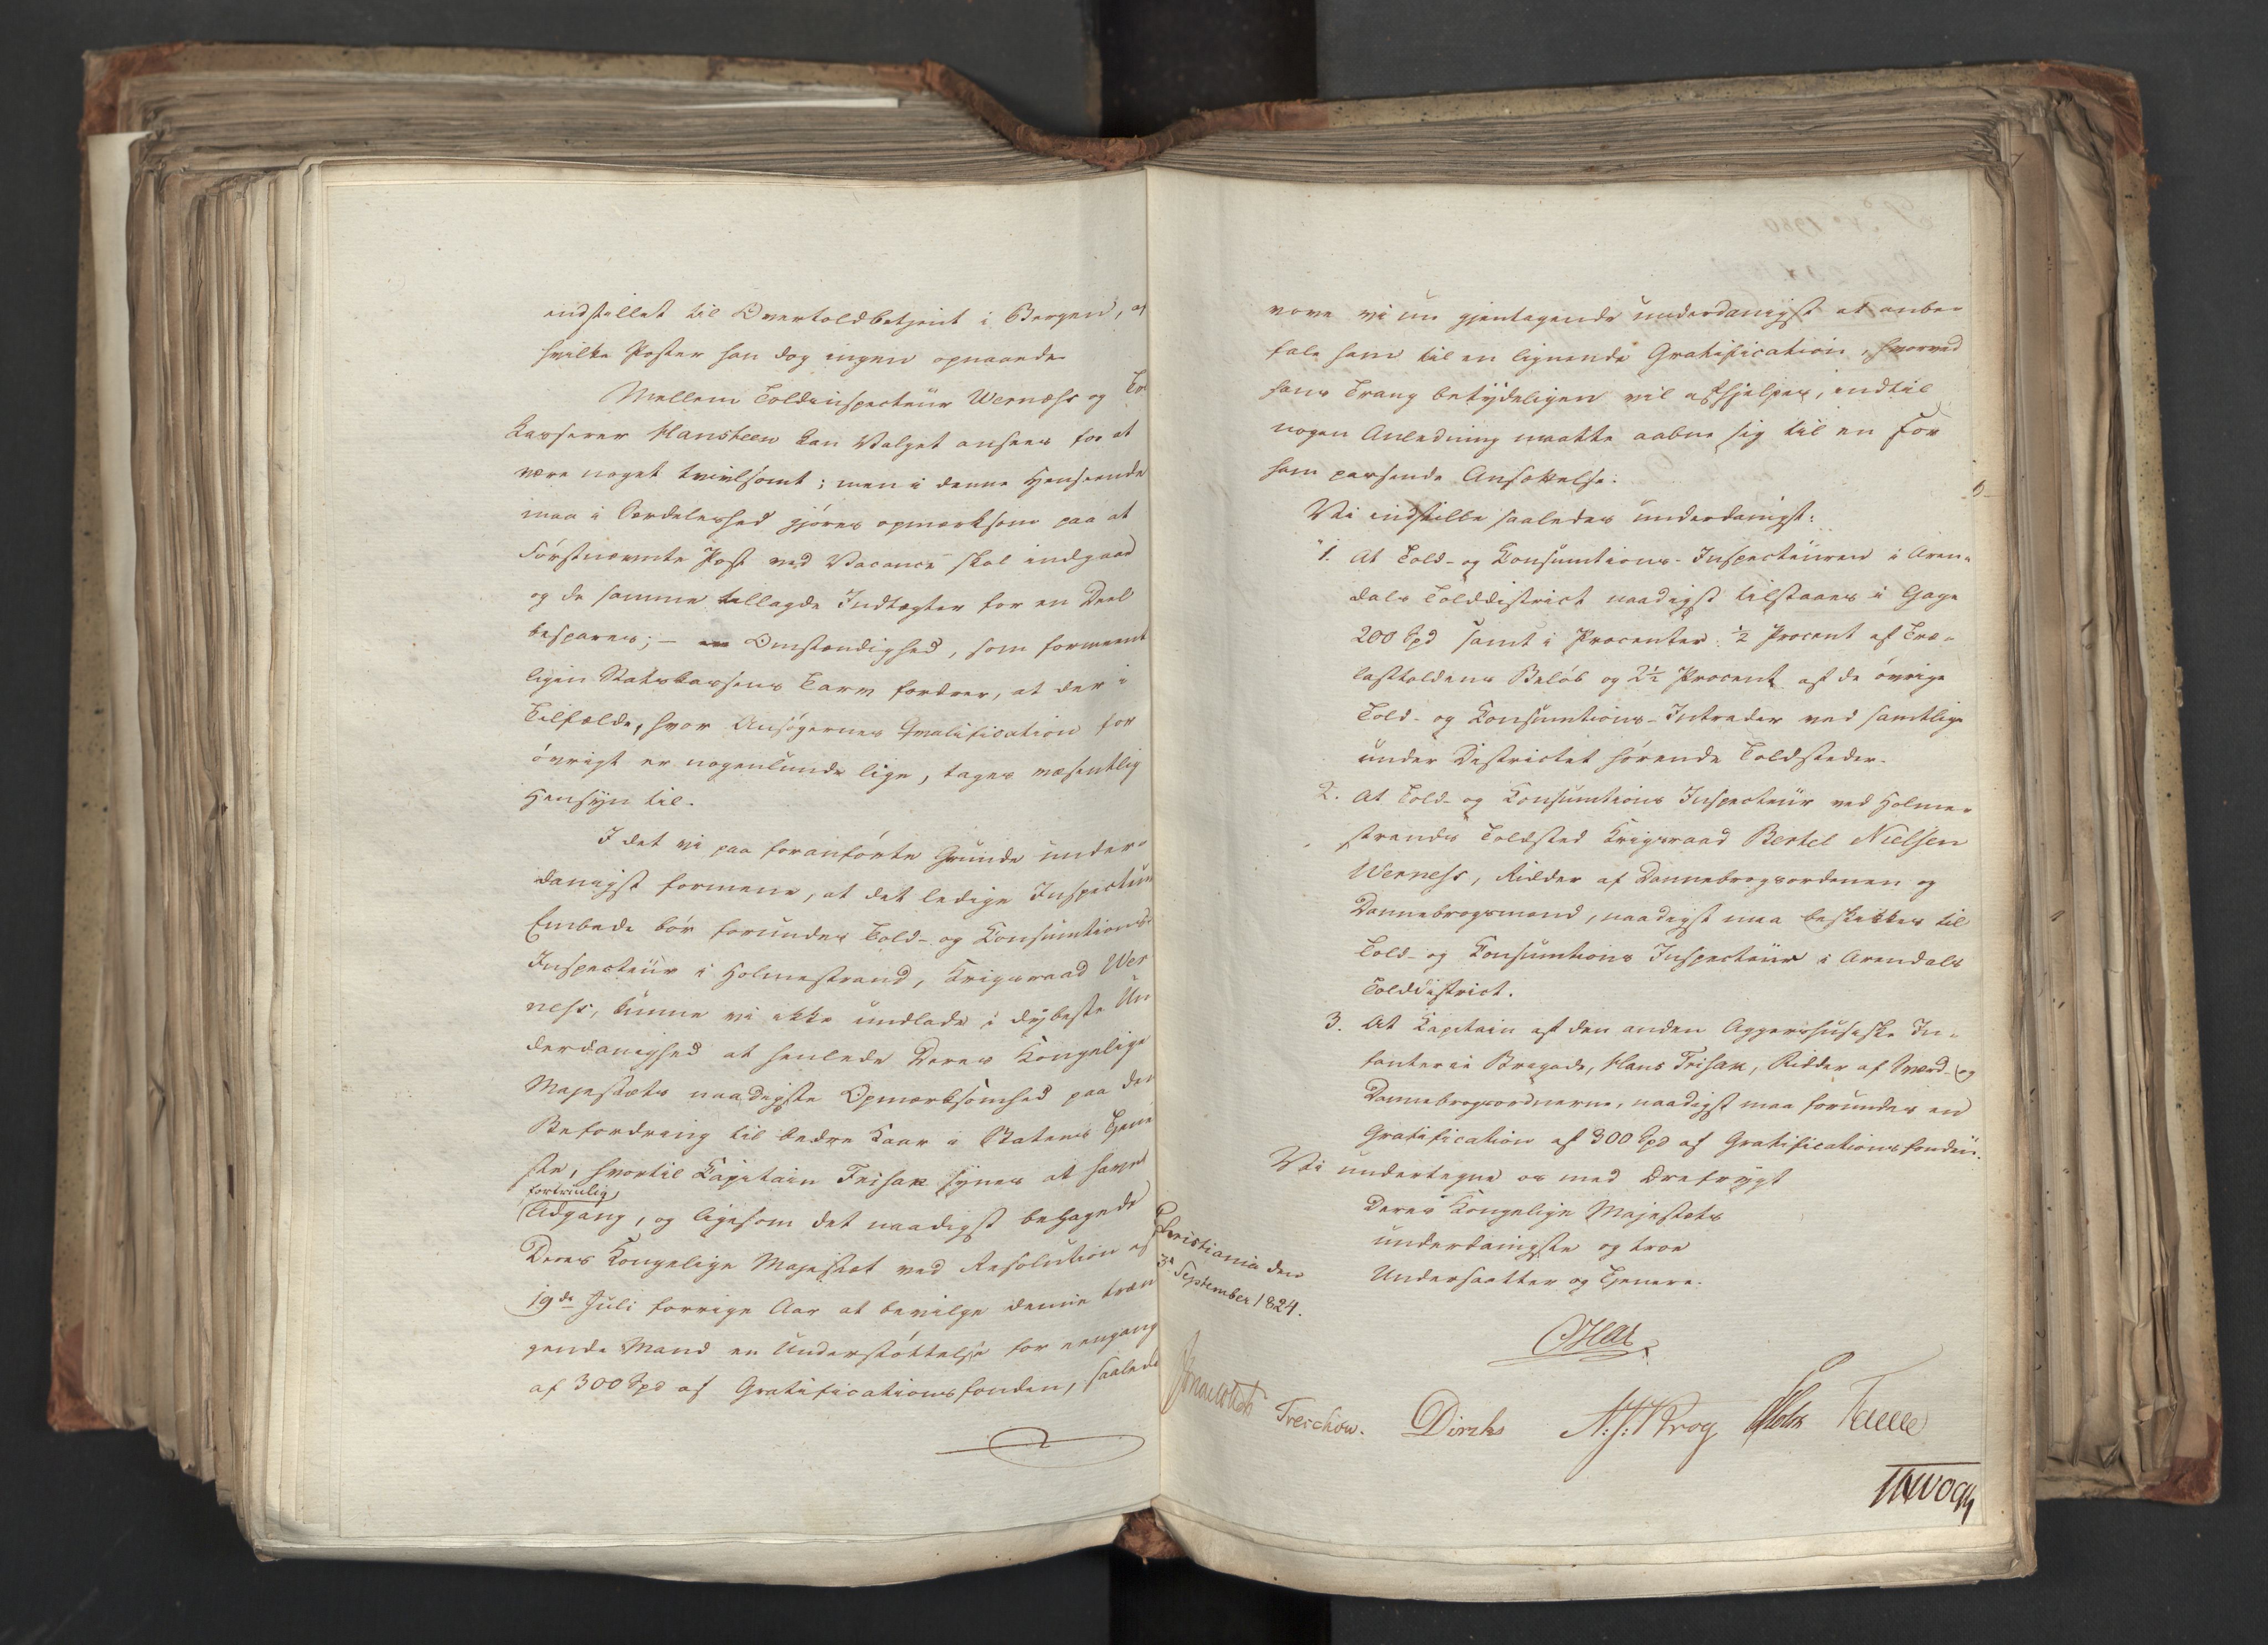 indstillet til Overtoldbetjent i Bergen, af
hvilke Poster han dog ingen opnaaede.
Mellem Toldinspecteur Werness og To
Kasserer Hansteen kan Valget ansees for at
være noget tvivlsomt; men i denne Henseende
maa i Særdeleshed gjøres opmærksom paa at
Førstnævnte Post ved Vacance skal indgaae
og de samme tillagde Indtægter for en Deel
bespares; – en Omstændighed, som formeent
ligen Statskassens Tarv fordrer, at der i
Tilfælde, hvor Ansøgernes Qvalification for
øvrigt er nogenlunde lige, tages væsentlig
Hensyn til.
I det vi paa foranførte Grunde under-
danigst formene, at det ledige Inspecteur
Embede bør forundes Told- og Consumtions-
Inspecteur i Holmestrand, Krigsraad Wer
ness, kunne vi ikke undlade i dybeste Un
derdanighed at henlede Deres Kongelige
Majestæts naadigste Opmærksomhed paa den
Befordring til bedre Kaar i Statens Tjene
ste, hvortil Kapitain Frisak synes at have
fortrinlig
Adgang, og ligesom det naadigst behagede
Deres Kongelige Majestæt ved Resolution af
19de Juli forrige Aar at bevilge denne træn
gende Mand en Understøttelse for eengang
af 300 Spd af Gratificationsfonden, saalede
vove vi nu gjentagende underdanigst at anbe-
fale ham til en lignende Gratification, hvorved
hans Trang betydeligen vil afhjelpes, indtil
nogen Anledning maatte aabne sig til en for
ham passende Ansættelse.
Vi indstille saaledes underdanigst:
1. At Told- og Consumtions-Inspecteuren i Aren-
dals Tolddistrict naadigst tilstaaes i Gage
200 Spd samt i Procenter ½ Procent af Træ-
lasttoldens Beløb og 2½ Procent af de øvrige
Told- og Consumtions-Intrader ved samtlige
under Districtet hørende Toldsteder.
2. At Told- og Consumtions Inspecteur ved Holme-
strands Toldsted Krigsraad Bertel Nielsen
Werness, Ridder af Dannebrogsordenen og
Dannebrogsmand, naadigst maa beskikkes til
Told- og Consumtions Inspecteur i Arendals
Tolddistrict.
3. At Kapitain af den anden Aggershusiske In-
fanterie Brigade, Hans Frisak, Ridder af Sværd- og
Dannebrogsordnerne, naadigst maa forundes en
Gratification af 300 Spd af Gratificationsfonden.
Vi undertegne os med Ærefrygt
Deres Kongelige Majestæts
underdanigste og troe
Undersaatter og Tjenere.
Christiania den
3d September 1824.
Treschow. Diriks A. J. Krog